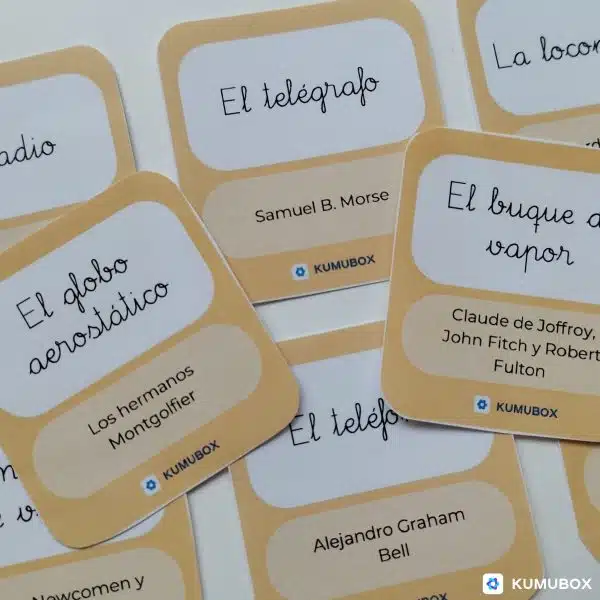 El telégrafo
Samuel B. Morse
KUMUBOX
La
adio
El buque
vapor
Claude de Joffroy,
John Fitch y Robert
Fulton
KUMUBOX
El globo
aerostático
Los hermanos
Montgolfier
KUMUBOX
El
Alejandro Graham
Bell
Newcomen y
KUMUBOX